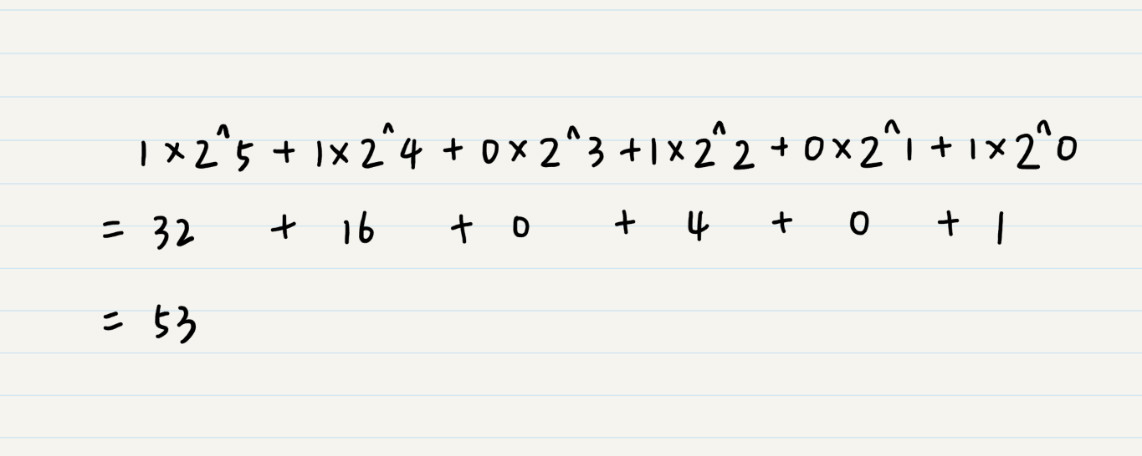 1×2^5 + 1×2^4 + 0×2^3 + 1×2^2 + 0×2^1 + 1×2^0
= 32 + 16 + 0 + 4 + 0 + 1
= 53